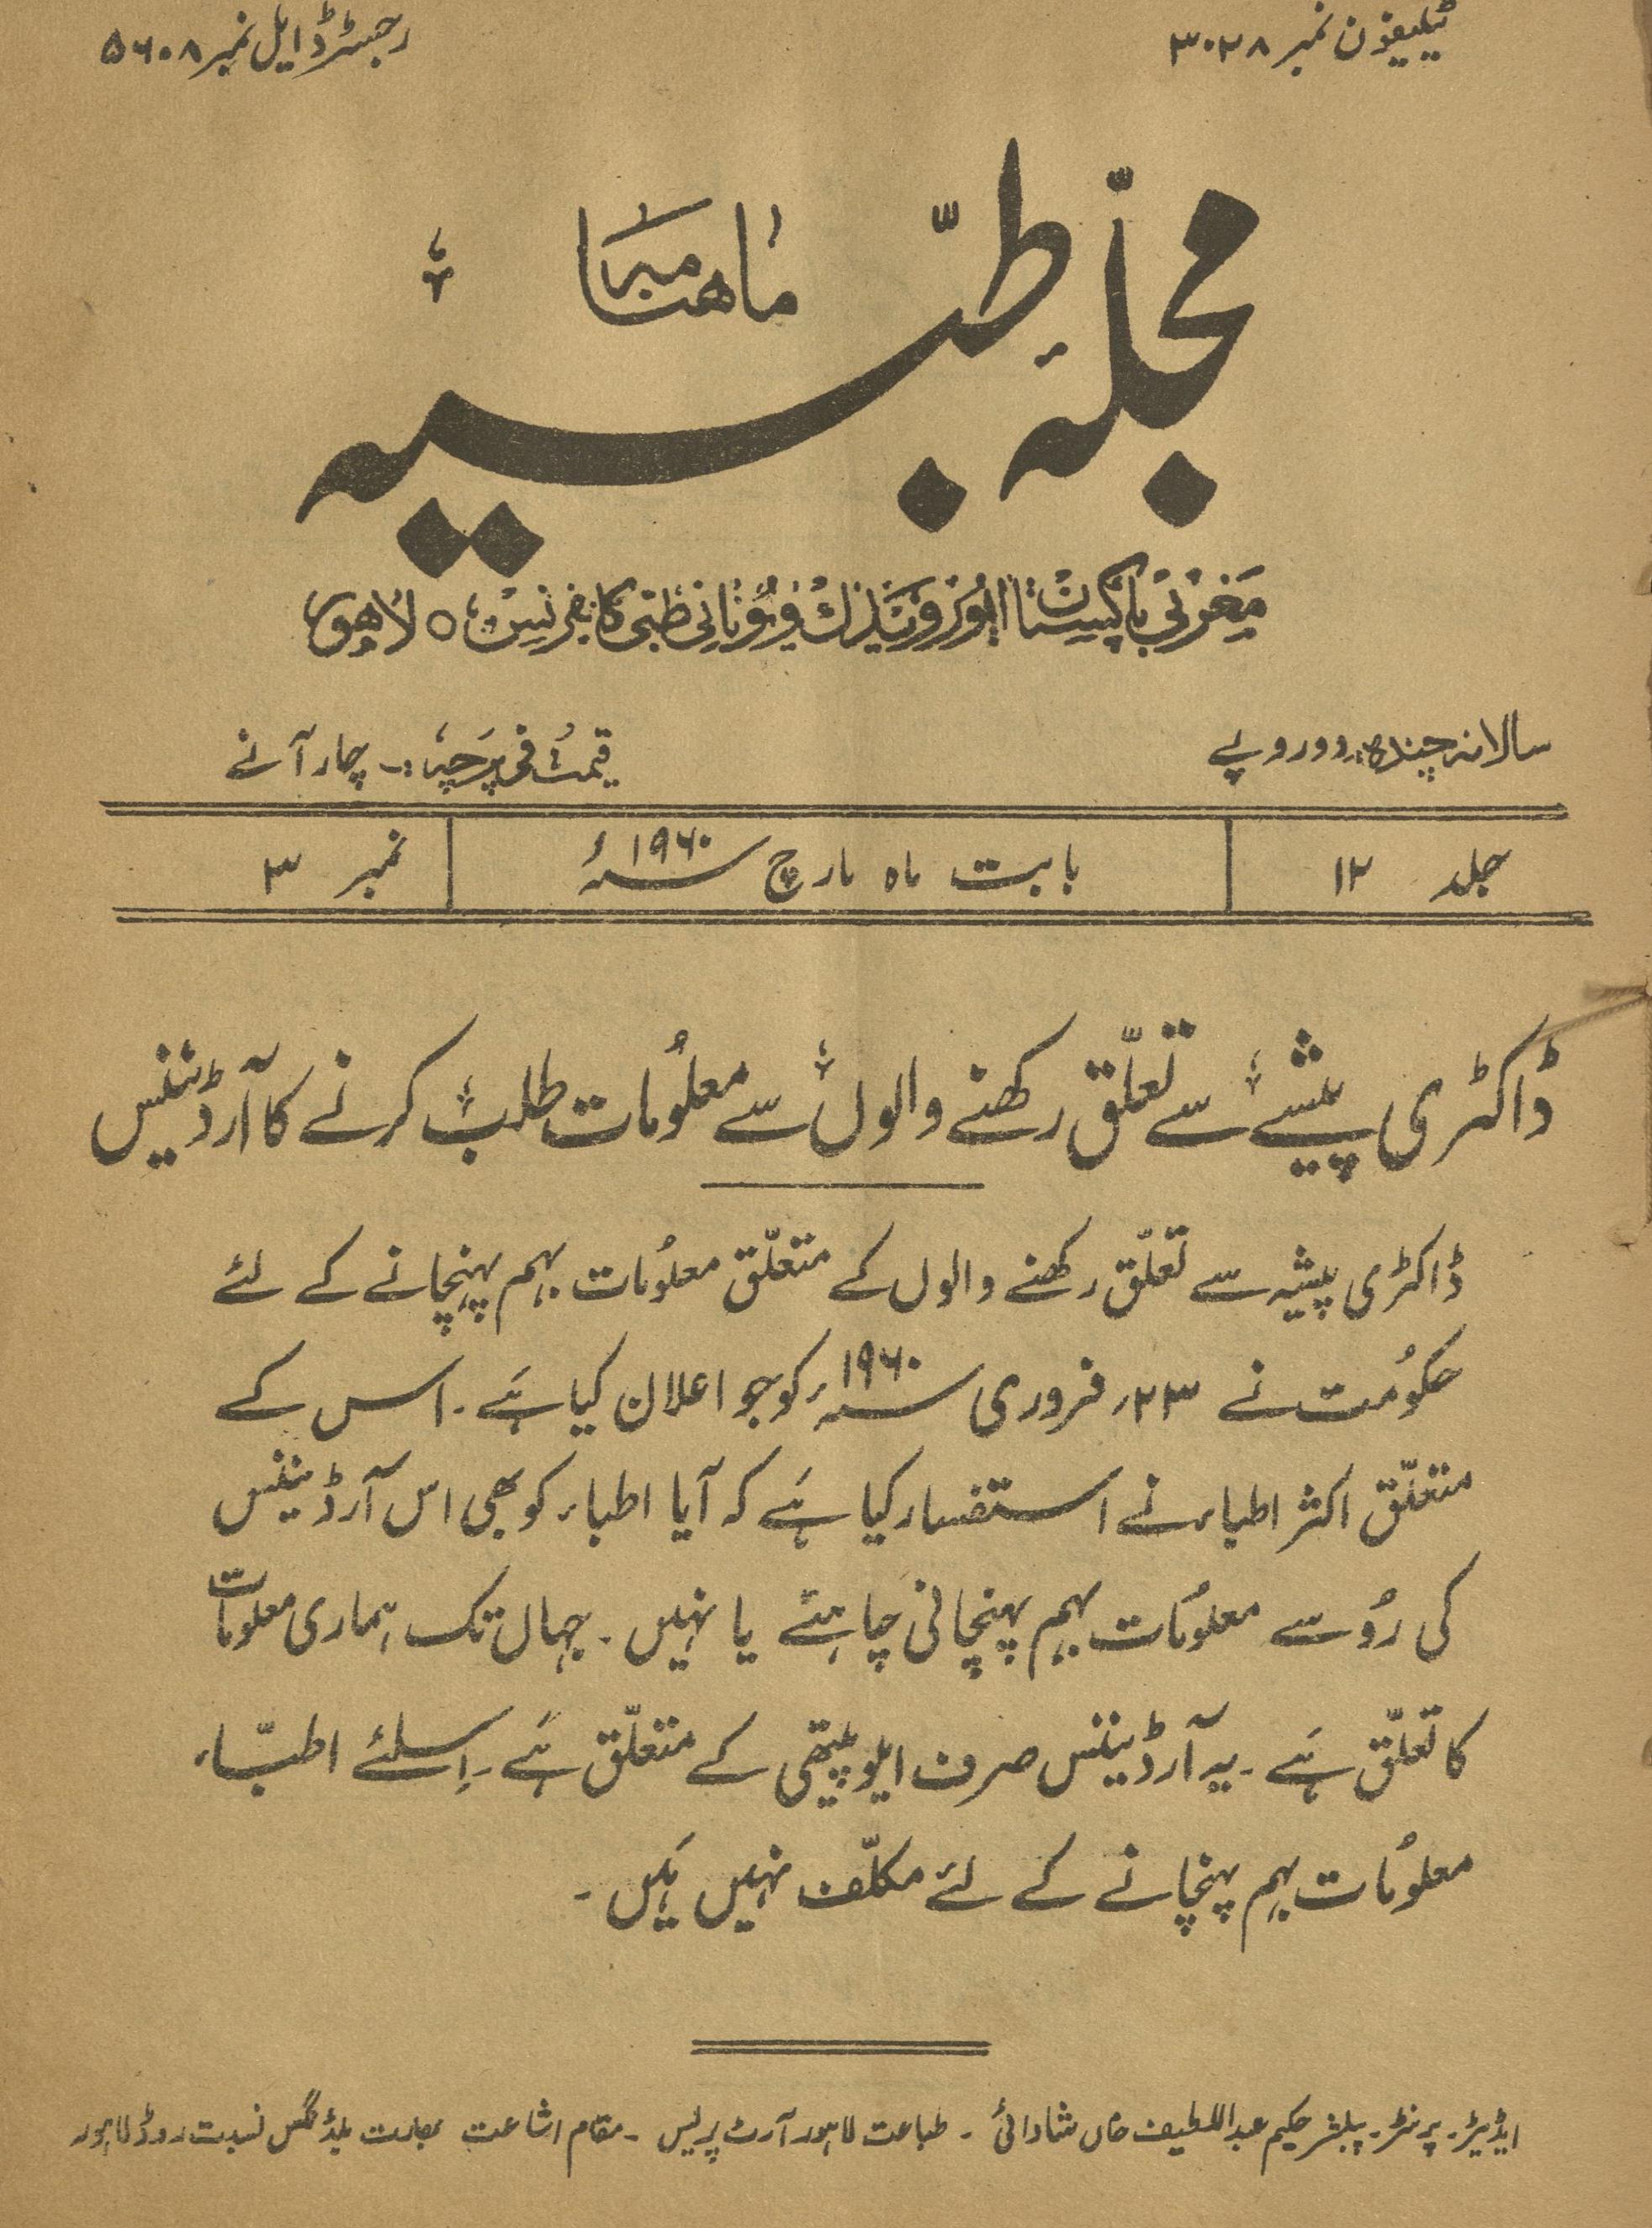 ٹیلیفون نمبر ۳۰۲۸
رجسٹرڈ ایل نمبر ۵۶۰۸
ماهنامہ
مجلہ طبّیہ
مغربی پاکستان ایورویدک و یونانی طبی کانفرنس، لاهور
سالانہ چندہ: دو روپے
قیمت فی پرچہ:۔ چار آنے
جلد ۱۲
بابت ماہ مارچ ۱۹۶۰ء
نمبر ۳
ڈاکٹری پیشے سے تعلّق رکھنے والوں سے معلُومات طلب کرنے کا آرڈیننس
ڈاکٹری پیشہ سے تعلّق رکھنے والوں کے متعلّق معلوُمات بہم پہنچانے کے لئے
حکوُمت نے ۲۳ر فروری ۱۹۶۰ء کو جو اعلان کیا ہَے۔ اس کے
متعلّق اکثر اطباء نے استفسار کیا ہَے کہ آیا اطباء کو بھی اس آرڈیننس
کی رُو سے معلوُمات بہم پہنچانی چاہئے یا نہیں۔ جہاں تک ہماری معلومات
کا تعلّق ہَے۔ یہ آرڈیننس صرف ایلوپیتھی کے متعلّق ہَے۔ اِسلئے اطبّاء
معلوُمات بہم پہنچانے کے لئے مکلّف نہیں ہَیں۔
ایڈیٹر۔ پرنٹر۔ پبلشر حکیم عبداللطیف خاں شادانی ۔ طباعت لاہور آرٹ پریس ۔ مقام اشاعت بھارت بلڈنگس نسبت روڈ لاہور